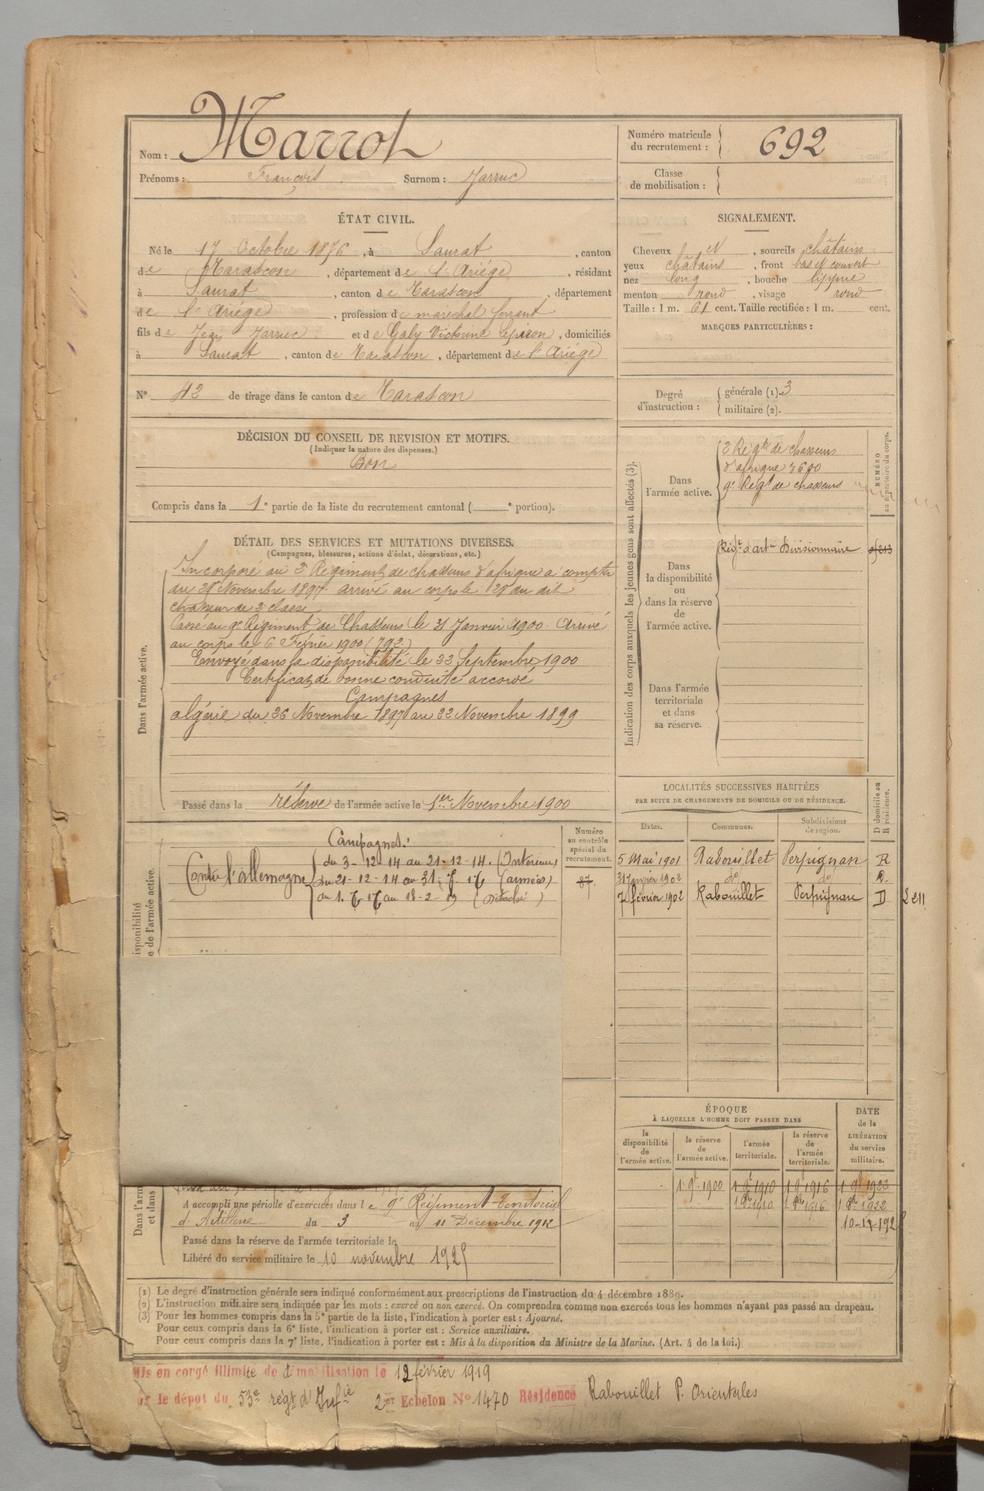 Nom : Marrot
Prénoms : François Surnom : Jarruc
Numéro matricule du recrutement : 692
Classe de mobilisation :
ÉTAT CIVIL.
Né le 17 Octobre 1876, à Saurat, canton
de Tarascon, département de l'Ariége, résidant
à Saurat, canton de Tarascon, département
de l'Ariége, profession de marechal ferrant
fils de Jean Jarruc et de Galy Victorine, domiciliés
à Saurat, canton de Tarascon, département de l'Ariége
N° 42 de tirage dans le canton de Tarascon
SIGNALEMENT.
Cheveux N, sourcils châtain
yeux châtains, front bas et couvert
nez long, bouche moyenne
menton rond, visage rond
Taille : 1 m. 61 cent. Taille rectifiée : 1 m. cent.
MARQUES PARTICULIÈRES :
Degré d'instruction : générale (1). 3
militaire (2).
DÉCISION DU CONSEIL DE REVISION ET MOTIFS.
(Indiquer la nature des dispenses.)
Bon
Compris dans la 1e partie de la liste du recrutement cantonal ( e portion).
DÉTAIL DES SERVICES ET MUTATIONS DIVERSES.
(Campagnes, blessures, actions d'éclat, décorations, etc.)
Dans l'armée active.
Incorporé au 3e Régiment de chasseurs d'afrique à compter
du Novembre 1897 arrivé au corps le du dit
chasseur de 2 classe
Passé au 9e Régiment de Chasseurs le 31 Janvier 1900. Arrivé
au corps le 6 Février 1900 (792)
Envoyé dans la disponibilité le 22 Septembre 1900
Certificat de bonne conduite accordé
Campagnes
algérie du 26 Novembre 1897 au 22 Novembre 1899
Passé dans la réserve de l'armée active le 1er Novembre 1900
Indication des corps auxquels les jeunes gens sont affectés (3).
NUMÉRO
Dans l'armée active.
3 Régt de chasseurs
d'afrique 7690
9e Régt de chasseurs
Dans la disponibilité ou dans la réserve de l'armée active.
Régt d'art Divisionnaire
Dans l'armée territoriale et dans sa réserve.
LOCALITÉS SUCCESSIVES HABITÉES
PAR SUITE DE CHANGEMENTS DE DOMICILE OU DE RÉSIDENCE.
D domicile ou R résidence.
Dates. Communes. Subdivisions de région.
5 Mai 1901 Rabouillet Perpignan R
31 Janvier 1902 do do R.
7 février 1902 Rabouillet Perpignan D
Numéro au contrôle spécial du recrutement.
87
Campagnes :
Contre l'allemagne
du 3-12-14 au 21-12-14. (Intérieur)
du 21-12-14 au 31-7-17 (armées)
du 1. 7. 17 au 18-2-19 (Détaché)
ÉPOQUE
À LAQUELLE L'HOMME DOIT PASSER DANS
DATE de la LIBÉRATION du service militaire.
la disponibilité de l'armée active. la réserve de l'armée active. l'armée territoriale. la réserve de l'armée territoriale.
1 9e 1900 1 9e 1910 1 9e 1916 1 9e 1922
A accompli une période d'exercices dans le 9e Régiment territorial
d'Artillerie du 3 au 11 Décembre 1912
Passé dans la réserve de l'armée territoriale le
Libéré du service militaire le 10 novembre 1925
(1) Le degré d'instruction générale sera indiqué conformément aux prescriptions de l'instruction du 4 décembre 1889.
(2) L'instruction militaire sera indiquée par les mots : exercé ou non exercé. On comprendra comme non exercés tous les hommes n'ayant pas passé au drapeau.
(3) Pour les hommes compris dans la 5e partie de la liste, l'indication à porter est : Ajourné.
Pour ceux compris dans la 6e liste, l'indication à porter est : Service auxiliaire.
Pour ceux compris dans la 7e liste, l'indication à porter est : Mis à la disposition du Ministre de la Marine. (Art. 4 de la loi.)
Mis en congé illimité de démobilisation le 12 février 1919
le dépôt du 53e régt d'Infie 2er Echelon N° 1470 Résidence Rabouillet P. Orientales